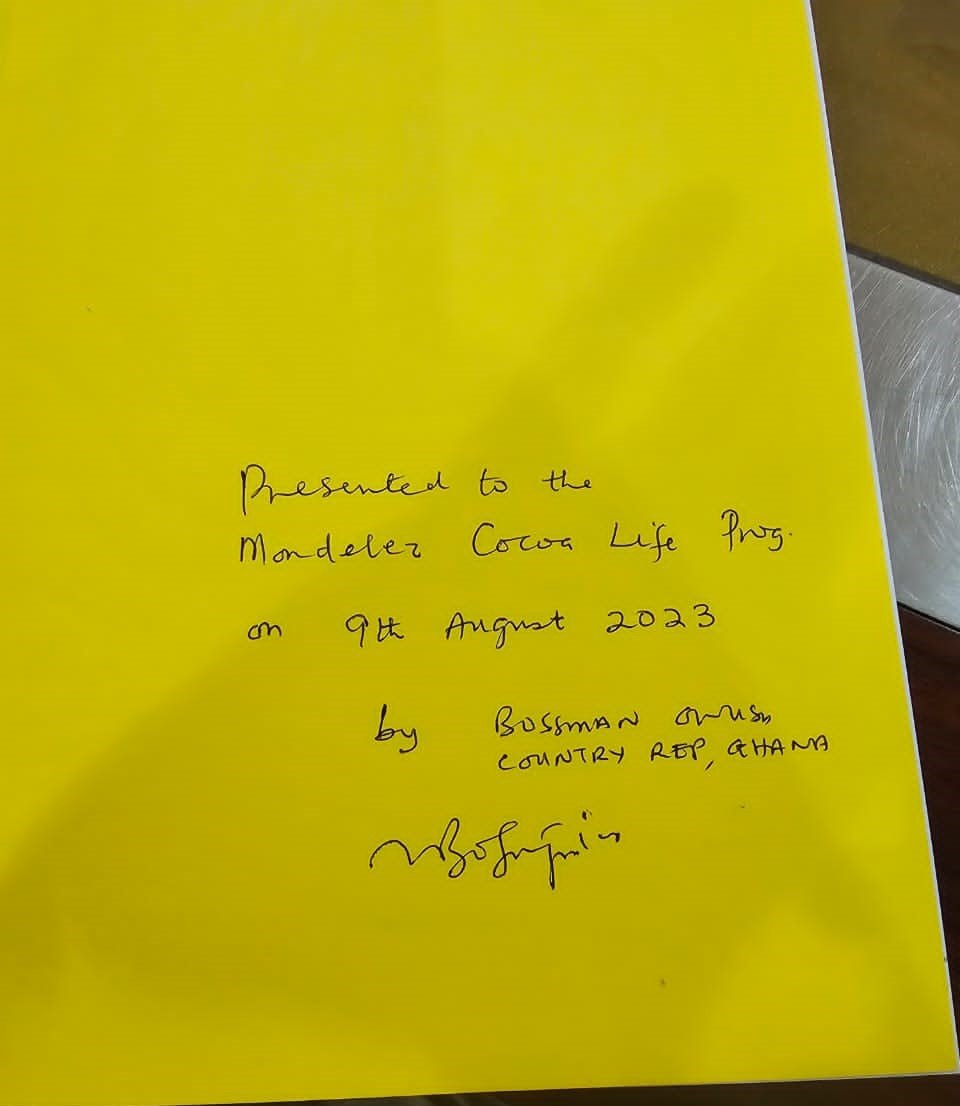 Presented to the
Mondelez Cocoa Life Prog.
on 9th August 2023
by BOSSMAN OWUSU
COUNTRY REP, GHANA